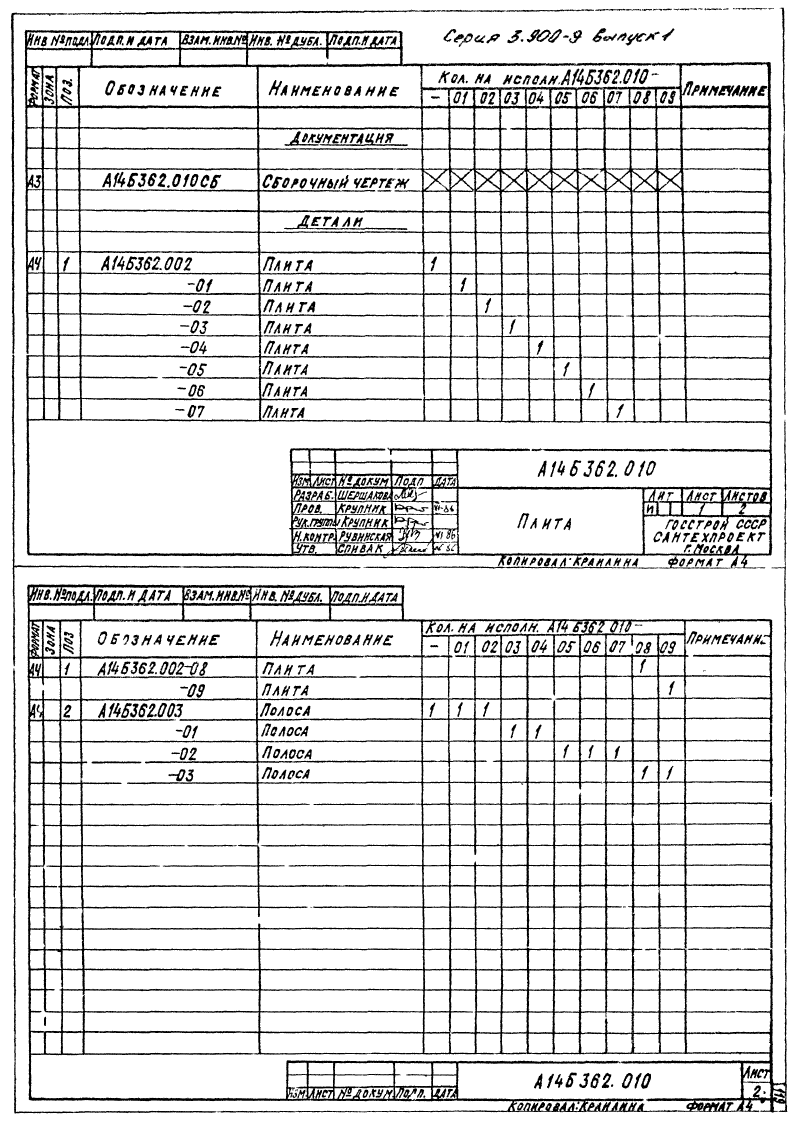 Серия 3.900-9 выпуск 1
Инв №подл. Подп. и дата Взам. инв.№ Инв. №дубл. Подп. и дата
Формат Зона Поз. Обозначение Наименование Кол. на исполн. А14Б362.010- Примечание
– 01 02 03 04 05 06 07 08 09
Документация
А3 А14Б362.010СБ Сборочный чертеж
Детали
А4 1 А14Б362.002 Плита 1
-01 Плита 1
-02 Плита 1
-03 Плита 1
-04 Плита 1
-05 Плита 1
-06 Плита 1
-07 Плита 1
А14Б362.010
Изм Лист № докум Подп Дата
Разраб. Шершакова
Пров. Крупник VI-86
Рук.группы Крупник
Н.контр. Рувинская VI 86
Утв. Спивак
Плита
Лит Лист Листов
И 1 2
Госстрой СССР
Сантехпроект
г. Москва
Копировал: Кранлина Формат А4
Инв. №подл. Подп. и дата Взам. инв.№ Инв. №дубл. Подп. и дата
Формат Зона Поз Обозначение Наименование Кол. на исполн. А14Б362 010- Примечание
– 01 02 03 04 05 06 07 08 09
А4 1 А14Б362.002-08 Плита 1
-09 Плита 1
А4 2 А14Б362.003 Полоса 1 1 1
-01 Полоса 1 1
-02 Полоса 1 1 1
-03 Полоса 1 1
Изм Лист № докум. Подп. Дата
А14Б362. 010
Лист
2
Копировал: Кранлина Формат А4